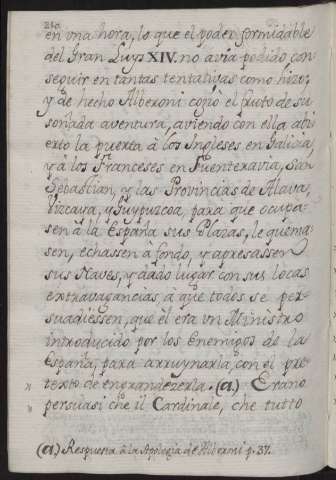 en vna hora, lo que el poder formidable
del Gran Luys XIV. no avia podido con
seguir en tantas tentativas como hizo;
y de hecho Alberoni copiò el fruto de su
soñada aventura, aviendo con ella abi
erto la puerta à los Ingleses en Galizia,
y à los Franceses en Fuenteravia, San
Sebastian, y las Provincias de Alava,
Vizcaya, y Guypuzcoa, para que ocupa-
sen à la España sus Plazas, le quema-
sen, echassen à fondo, y apresassen
sus Naves, y dado lugar con sus locas
extravagancias à que todos se per
suadiessen, que èl era vn Ministro
introducido por los Enemigos de la
España, para arruynarla, con el pre
texto de engrandezerla. (a) Erano
persuasi che il Cardinale, che tutto
(a) Respuesta à la Apologia de Alberoni p. 37.